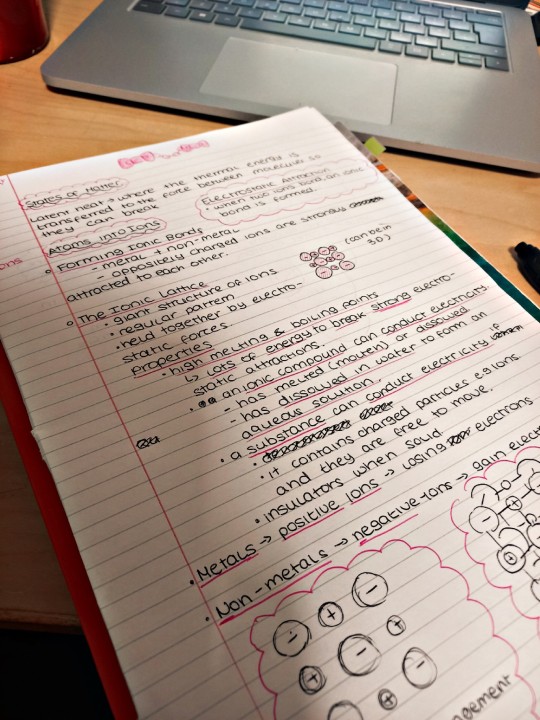 States of Matter
Latent heat → where the thermal energy is
transferred to the force between molecules so
they can break.
Electrostatic Attraction
• when two ions bond, an ionic
bond is formed.
Atoms into Ions
Forming Ionic Bonds
- metal + non-metal
- oppositely charged ions are strongly
attracted to each other.
The Ionic Lattice
• giant structure of ions
• regular pattern
• held together by electro-
static forces
(can be in
3D)
Properties
• high melting & boiling points
↳ lots of energy to break strong electro-
static attractions.
• an ionic compound can conduct electricity.
- has melted (molten) or dissolved
- has dissolved in water to form an
aqueous solution.
• a substance can conduct electricity if
• it contains charged particles eg ions
and they are free to move.
• insulators when solid
• Metals → positive ions → losing electrons
• Non-metals → negative ions → gain elect
ons
- + -
- +
+ - -
+
gement